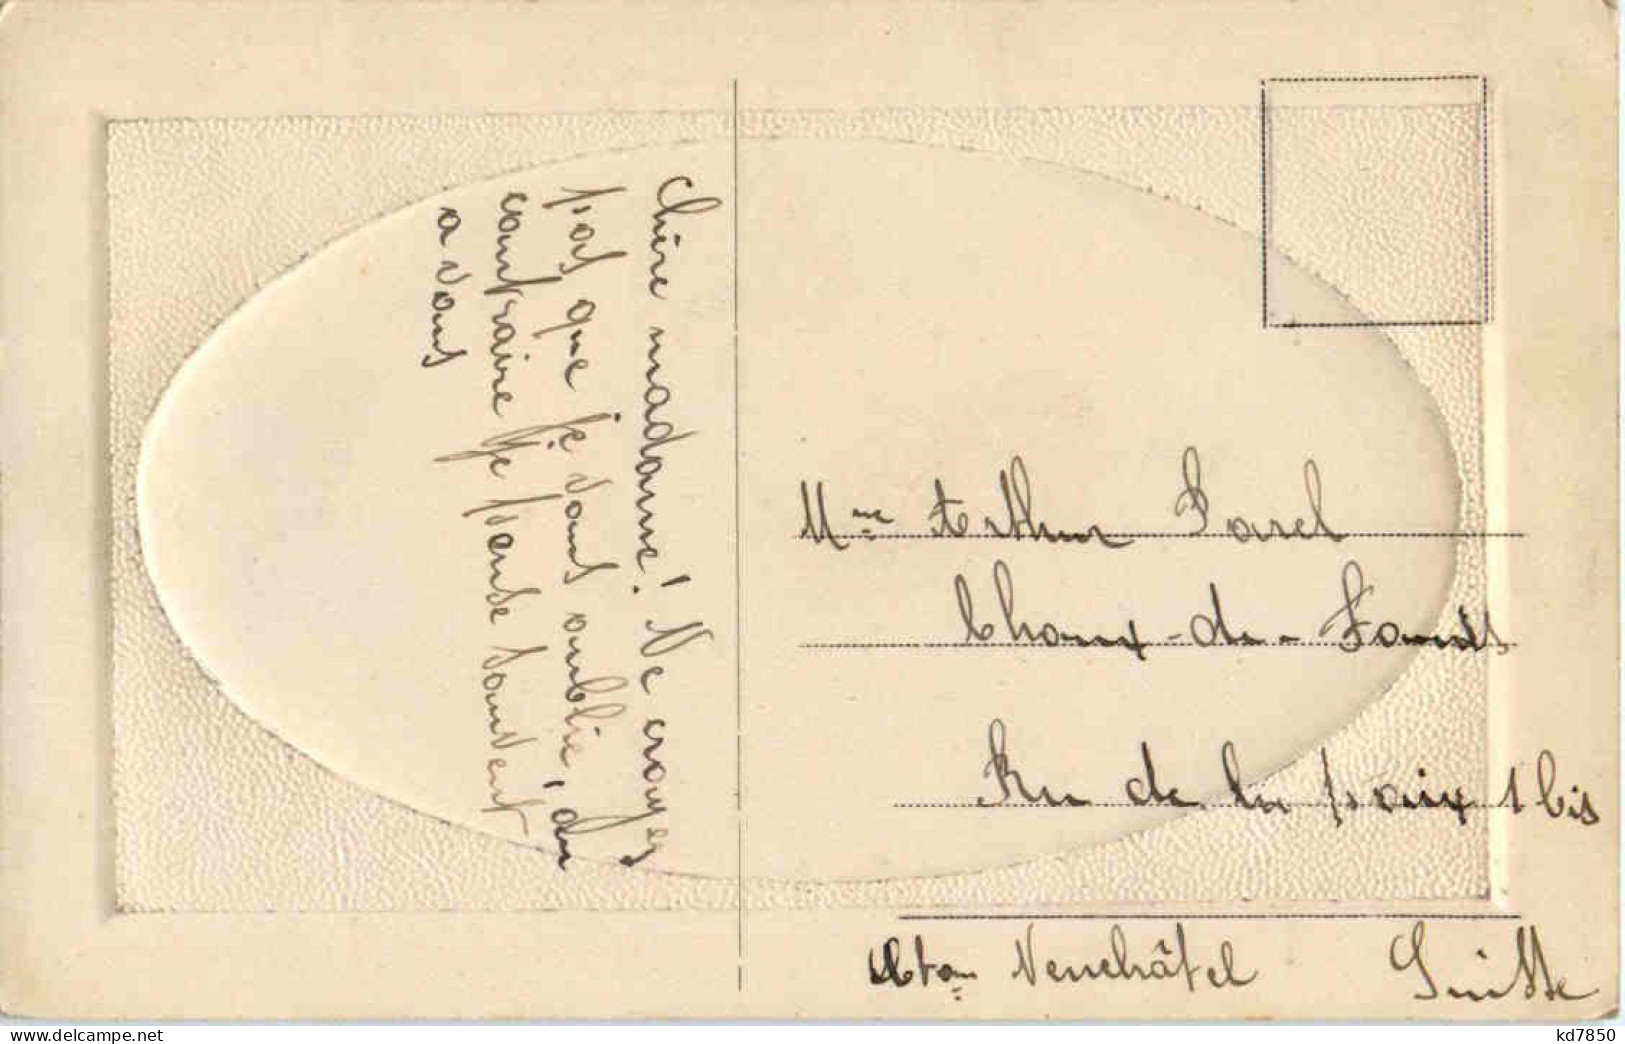 Chère madame! Ne croyez
pas que je vous oublie, au
contraire je pense souvent
a vous
Mme Arthur Parel
Chaux-de-Fonds
Ru de la paix 1 bis
Cton Neuchâtel Suisse
delcampe.net
kd7850